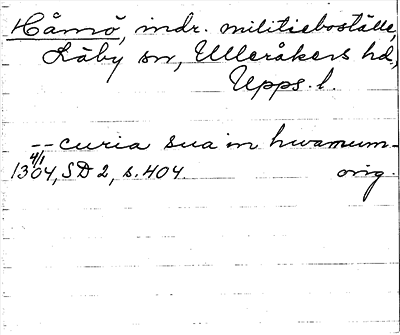 Håmö, indr. militieboställe,
Läby sn, Ulleråkers hd.,
Upps. l.
-- curia sua in hwamum -
4/1
1304, SD 2, s. 404. orig.